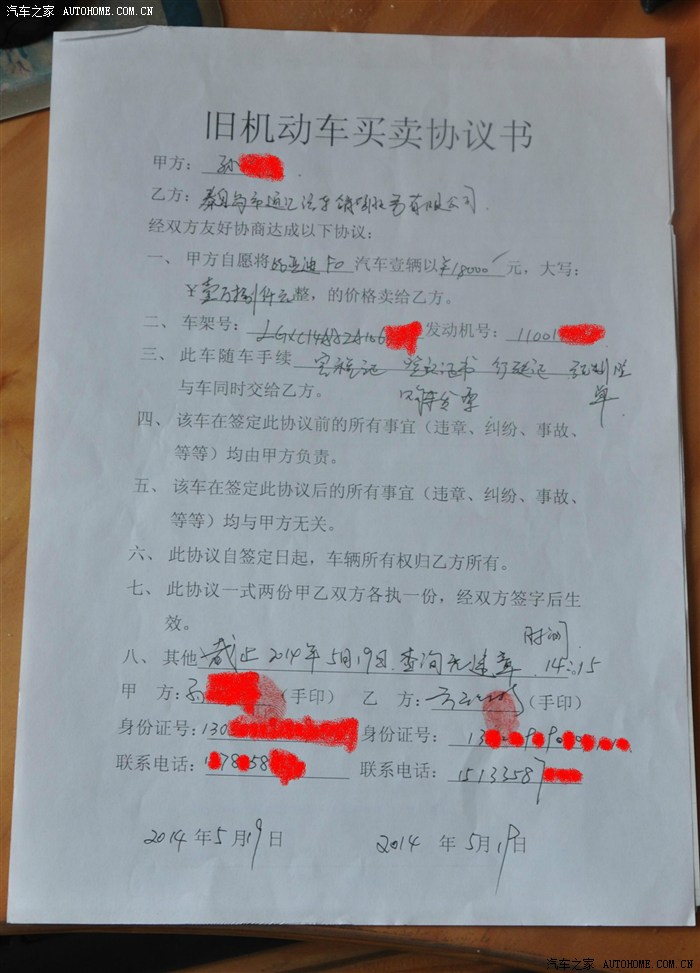 汽车之家 AUTOHOME.COM.CN
旧机动车买卖协议书
甲方：孙
乙方：秦皇岛市通汇汽车销售服务有限公司
经双方友好协商达成以下协议：
一、甲方自愿将比亚迪 F0 汽车壹辆以￥18000 元，大写：
￥壹万捌仟元整，的价格卖给乙方。
二、车架号：发动机号：11001
三、此车随车手续 完税证 登记证书 行驶证
与车同时交给乙方。
四、该车在签定此协议前的所有事宜（违章、纠纷、事故、
等等）均由甲方负责。
五、该车在签定此协议后的所有事宜（违章、纠纷、事故、
等等）均与甲方无关。
六、此协议自签定日起，车辆所有权归乙方所有。
七、此协议一式两份甲乙双方各执一份，经双方签字后生
效。
时间
八、其他 截止 2014年5月19日 查询无违章 14:15
甲 方：孙（手印） 乙 方：（手印）
身份证号：130 身份证号：13
联系电话： 联系电话：1513358
2014 年 5 月 19 日 2014 年 5 月 19 日
汽车之家 AUTOHOME.COM.CN